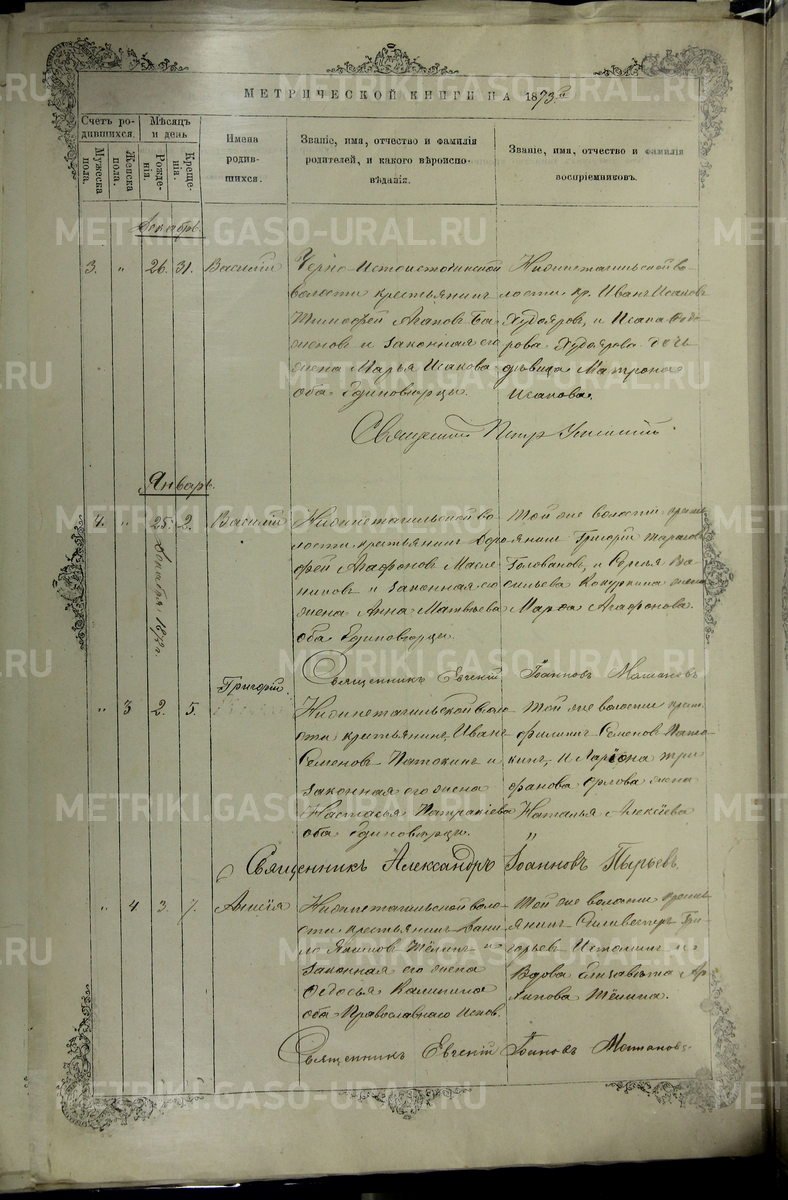 МЕТРИЧЕСКОЙ КНИГИ НА 1873 г.
Счетъ ро-
дившихся.
Мужеска
пола.
Женска
пола.
Мѣсяцъ
и день
Рожде-
нія.
Креще-
нія.
Имена
родив-
шихся.
Званіе, имя, отчество и фамилія
родителей, и какого вѣроиспо-
вѣданія.
Званіе, имя, отчество и фамилія
воспріемниковъ.
Декабрь.
3. " 26. 31. Василій
Черно-Источинской
волости крестьянинъ
Тимофей Агаповъ
и законная его
жена Марья Исакова
оба Единовѣрцы.
Нижнетагильской во-
лости кр. Иванъ Исаковъ
Худояровъ, и Исака
Худоярова дочь
дѣвица Матрона
Исакова.
Священникъ Петръ
Январь.
" 25. 2. Василій
Декабря 1872 г.
Нижнетагильской во-
лости крестьянинъ Доро-
фей Агафоновъ Масле-
никовъ и законная его
жена Анна Матвѣева
оба Единовѣрцы.
Той же волости крест-
янинъ Григорій
Головановъ, и Сергѣя Ва-
сильева Кокуркина жена
Марѳа Агафонова.
Священникъ Евгеній Іоанновъ
Григорій
" 3 2. 5.
Нижнетагильской воло-
сти крестьянинъ Иванъ
Семеновъ Патокинъ и
законная его жена
Настасья Патракіева
оба Единовѣрцы.
Той же волости крест.
Филиппъ Семеновъ Пато-
кинъ, и Ларіона Три-
фанова Орлова жена
Наталья Алексѣева
"
Священникъ Александръ Іоанновъ Пырьевъ.
" 4 3. 7. Анисія
Нижнетагильской воло-
сти крестьянинъ Дани-
ло Тёлинъ и
законная его жена
Ѳедосья Калинина
оба Православнаго испов.
Той же волости крест-
янинъ Силивестръ Гри-
горьевъ Истоминъ и
Вдова Елизавета Ар-
хипова Тёлина.
Священникъ Евгеній Іоанновъ
METRIKI.GASO-URAL.RU